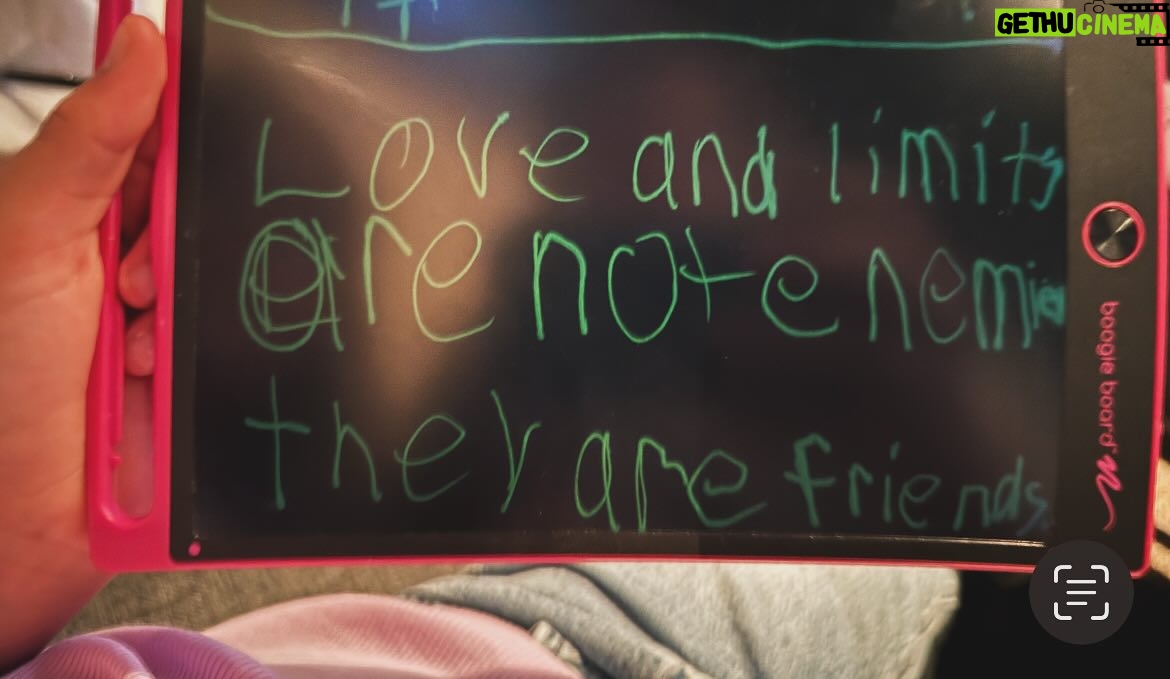 GETHUCINEMA
Love and limits
are not enemies
they are friends
boogie board